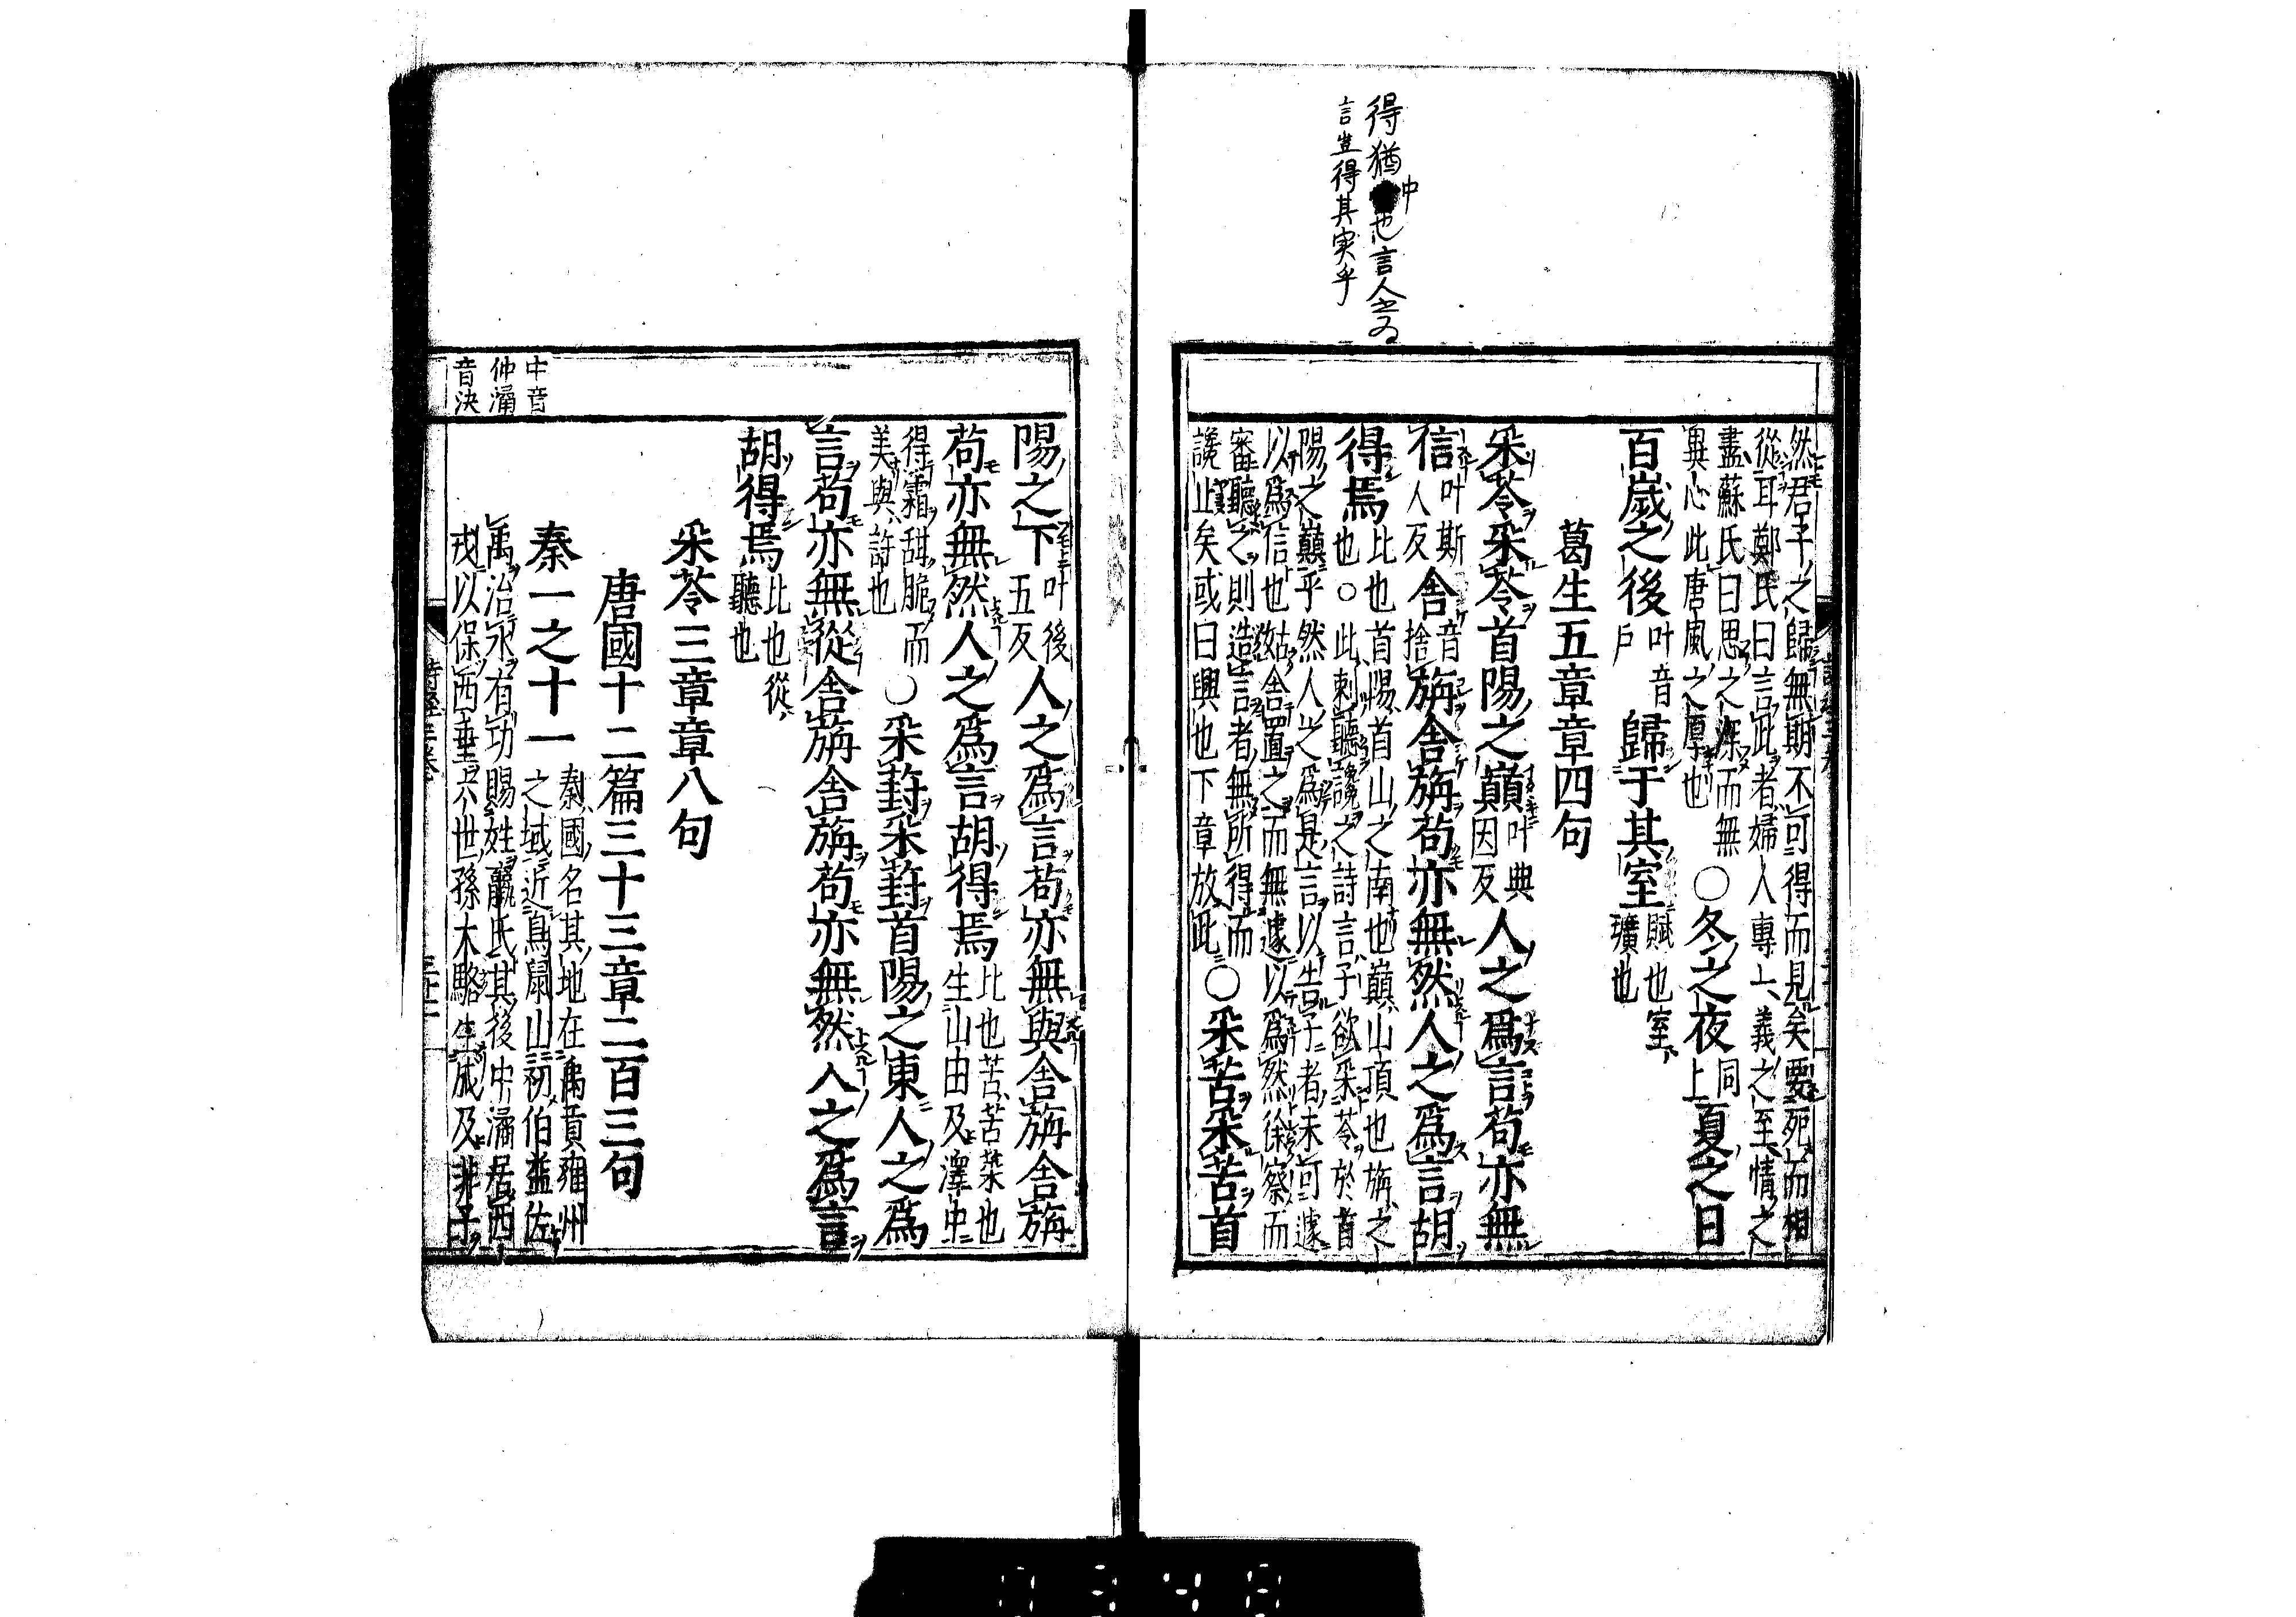 得猶中也言人之為
言豈得其実乎
然君子之歸無期不可得而見矣要死而相
從耳鄭氏曰言此者婦人專一義之至情之
盡蘇氏曰思之深而無
異心此唐風之厚也
○冬之夜
同上
夏之日
百歲之後
叶音
戶
歸于其室
賦也室
壙也
葛生五章章四句
采苓采苓首陽之巔
叶典
因反
人之爲言苟亦無
信
叶斯
人反
舍
音
捨
旃舍旃苟亦無然人之爲言胡
得焉
比也首陽首山之南也巔山頂也旃之
也○此刺聽讒之詩言子欲采苓於首
陽之巔乎然人之爲是言以告子者未可遽
以爲信也姑舍置之而無遽以爲然徐察而
審聽之則造言者無所得而
讒止矣或曰興也下章放此
○采苦采苦首
陽之下
叶後
五反
人之爲言苟亦無與舍旃舍旃
苟亦無然人之爲言胡得焉
比也苦苦菜也
生山田及澤中
得霜甜脆而
美與許也
○采葑采葑首陽之東人之爲
言苟亦無從舍旃舍旃苟亦無然人之爲言
胡得焉
比也從
聽也
采苓三章章八句
唐國十二篇三十三章二百三句
秦一之十一
秦國名其地在禹貢雍州
之域近鳥鼠山初伯益佐
禹治水有功賜姓嬴氏其後中潏居西
戎以保西垂六世孫大駱生成及非子
中音
仲潏
音決